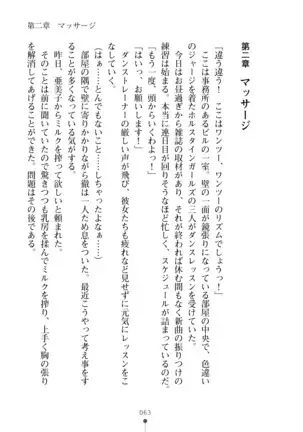 第二章　マッサージ
第二章　マッサージ
「違う違う！　ここはワンツー、ワンツーのリズムでしょうっ！」
ここは事務所のあるビルの一室。壁の一面が鏡張りになった部屋の中央で、色違い
のジャージを着たホルスタインガールズの三人がダンスレッスンを受けていた。
今日はお昼過ぎから雑誌の取材があり、それが終われば休む間もなく新曲の振りつけ
練習が始まる。本当に連日目が回りそうなほど忙しく、スケジュールが詰まっている。
「もう一度、頭からいくわよっ！」
「はいっ、お願いします！」
ダンストレーナーの厳しい声が飛び、彼女たちも疲れなど見せずに元気にレッスンをこ
なしていく。
（しちゃったなぁ……）
しちゃった。とんでもないことをしちゃった……。
部屋の隅で壁に寄りかかりながら徹は一人ため息をついた。最近こうやって考え事をす
ることが多くなっている気がする。
昨日、亜美子からミルクを搾って欲しいと頼まれた。
いきなりのことに驚きつつも乳房を揉んでミルクを搾り、上手く胸の張り
を解消してあげることができた。問題はその後である。
063